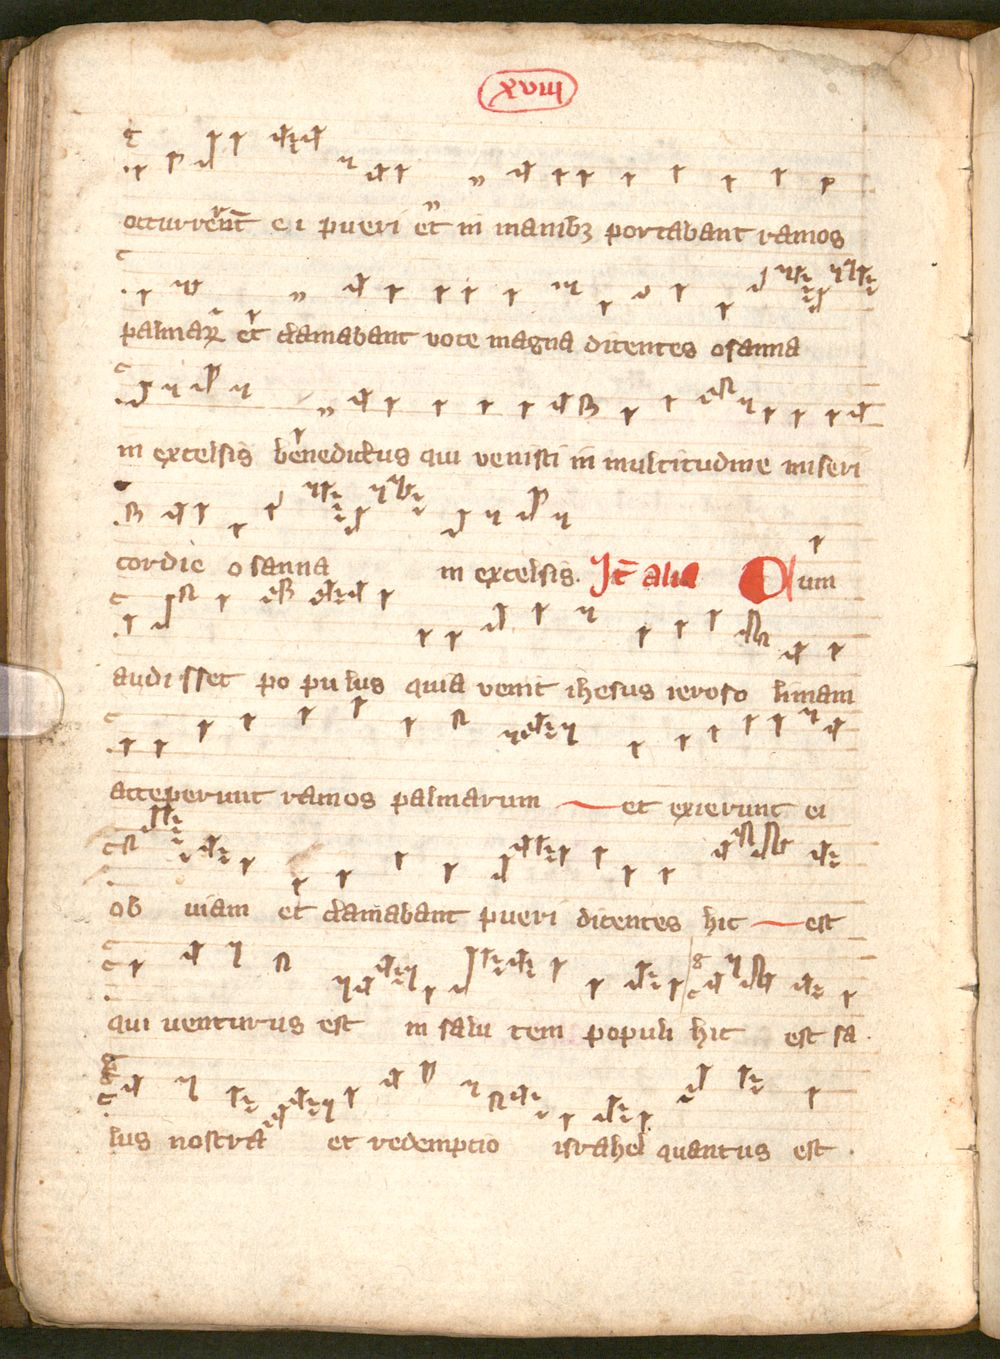 xviii
occurrer̄nt ei pueri et in manibꝫ portabant ramos
palmaꝝ et clamabant voce magna dicentes osanna
in excelsis benedictus qui venisti in multitudine miseri
cordie osanna in excelsis. It̄ alia Cum
audisset populus quia venit ihesus ierosolimam
acceperunt ramos palmarum et exierunt ei
obuiam et clamabant pueri dicentes hic est
qui venturus est in salutem populi hic est sa
lus nostra et redemptio israhel quantus est .